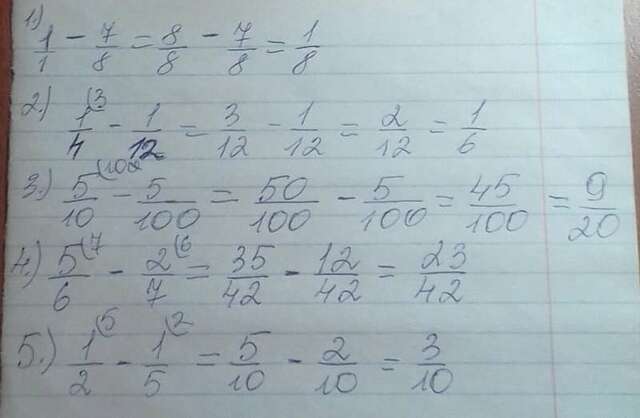 1) 1/1 - 7/8 = 8/8 - 7/8 = 1/8
2.) 1(3/4 - 1/12 = 3/12 - 1/12 = 2/12 = 1/6
3.) 5(10/10 - 5/100 = 50/100 - 5/100 = 45/100 = 9/20
4.) 5(7/6 - 2(6/7 = 35/42 - 12/42 = 23/42
5.) 1(5/2 - 1(2/5 = 5/10 - 2/10 = 3/10